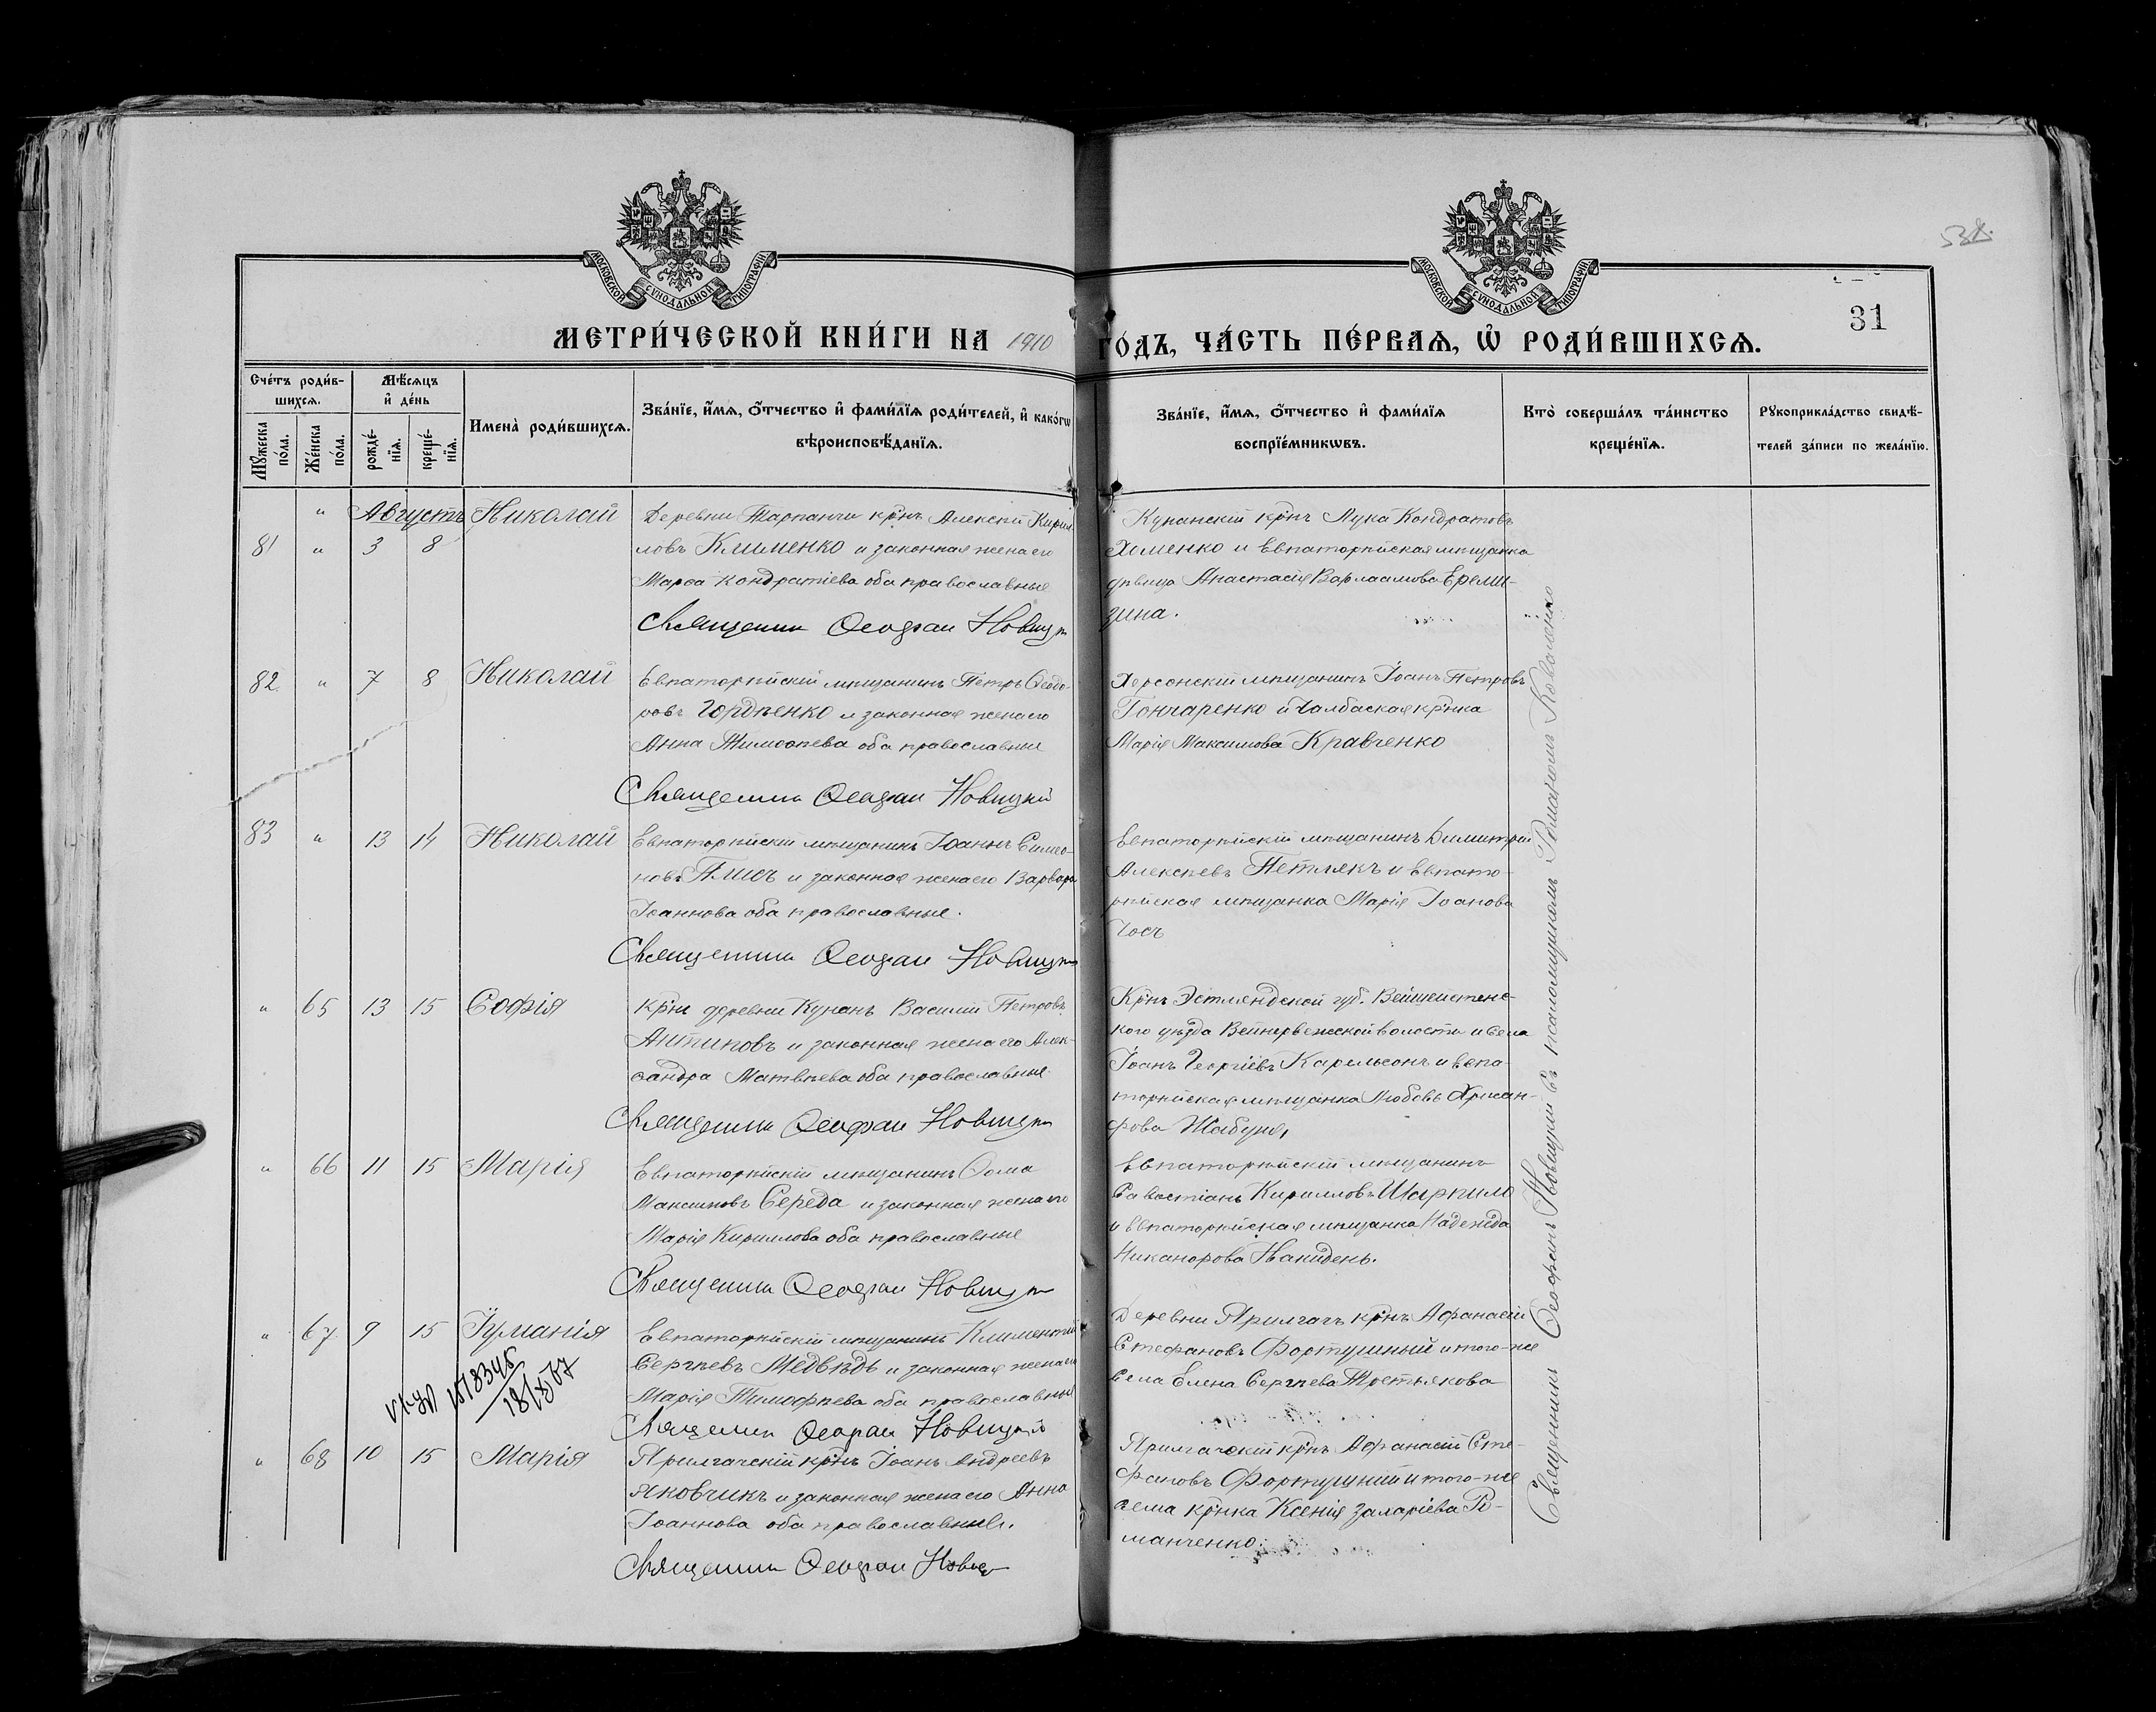 538.
31
МОСКОВСКОЙ СѴНОДАЛЬНОЙ ТИПОГРАФІИ
МОСКОВСКОЙ СѴНОДАЛЬНОЙ ТИПОГРАФІИ
МЕТРИ́ЧЕСКОЙ КНИ́ГИ НА 1910 ГО́ДЪ, ЧА́СТЬ ПЕ́РВАѦ, Ѡ҆ РОДИ́ВШИХСѦ.
Сче́тъ роди́в-
шихсѧ.
Мѣ́сѧцъ
и҆ де́нь
Мꙋ́жеска
по́ла.
Же́нска
по́ла.
рожде́-
нїѧ.
креще́-
нїѧ.
Имена̀ роди́вшихсѧ.
Зва́нїе, и҆́мѧ, ѻ҆́тчество и҆ фами́лїѧ роди́телей, и҆ како́гѡ
вѣроисповѣ́данїѧ.
Зва́нїе, и҆́мѧ, ѻ҆́тчество и҆ фами́лїѧ
воспрїе́мникѡвъ.
Кто̀ соверша́лъ та́инство
креще́нїѧ.
Рꙋкоприкла́дство свидѣ́-
телей за́писи по жела́нїю.
" Августъ Николай Деревни Тарпанчи крнъ Алексѣй Кирил-
81 " 3 8 ловъ Клименко и законная жена его
Марѳа Кондратіева оба православные
Священник Ѳеофан Новицкій
Кунанскій крнъ Лука Кондратовъ
Хоменко и Евпаторійская мѣщанка
дѣвица Анастасія Варлаамова Ереми-
зина.
82. " 7 8 Николай Евпаторійскій мѣщанинъ Петръ Ѳеодо-
ровъ Гордѣенко и законная жена его
Анна Тимоѳѣева оба православные
Священник Ѳеофан Новицкій
Херсонскій мѣщанинъ Іоанъ Петровъ
Гончаренко и Чалбаская крнка
Марія Максимова Кравченко
83 " 13 14 Николай Евпаторійскій мѣщанинъ Іоаннъ Симео-
новъ Плисъ и законная жена его Варвара
Іоаннова оба православные.
Священник Ѳеофан Новицкій
Евпаторійскій мѣщанинъ Димитрій
Алексѣевъ Петлякъ и Евпато-
рійская мѣщанка Марія Іоанова
Чосъ
" 65 13 15 Софія Крнъ деревни Кунанъ Василій Петровъ
Антиповъ и законная жена его Алек-
сандра Матвѣева оба православные
Священник Ѳеофан Новицкій
Крнъ Эстляндской губ. Вейшейстенс-
кого уѣзда волости и села
Іоанъ Георгіевъ Карельсонъ и Евпа-
торійская мѣщанка Любовь Хрисан-
фова Шабуня
" 66 11 15 Марія Евпаторійскій мѣщанинъ Ѳома
Максимовъ Середа и законная жена его
Марія Кириллова оба православные
Священник Ѳеофан Новицкій
Евпаторійскій мѣщанинъ
Савостіанъ Кирилловъ Шарпило
и Евпаторійская мѣщанка Надежда
Никанорова Накидень.
" 67. 9 15 Іуманія Евпаторійскій мѣщанинъ Климентій
Сергѣевъ Медвѣдь и законная жена его
Марія Тимофѣева оба православные
Священник Ѳеофан Новицкій
1518345
18/8 67
Деревни Ярылгачъ крнъ Афанасій
Стефановъ Фортушный и того-же
села Елена Сергѣева Третьякова
" 68 10 15 Марія Ярилгачскій крнъ Іоанъ Андреевъ
Яковчикъ и законная жена его Анна
Іоаннова оба православные.
Священник Ѳеофан Новиц
Ярилгачскій крнъ Афанасій Сте-
фановъ Фортушний и того-же
села крнка Ксенія Захаріева Ро-
манченко.
Священникъ Ѳеофанъ Новицкій съ псаломщикомъ Романомъ Коваленко